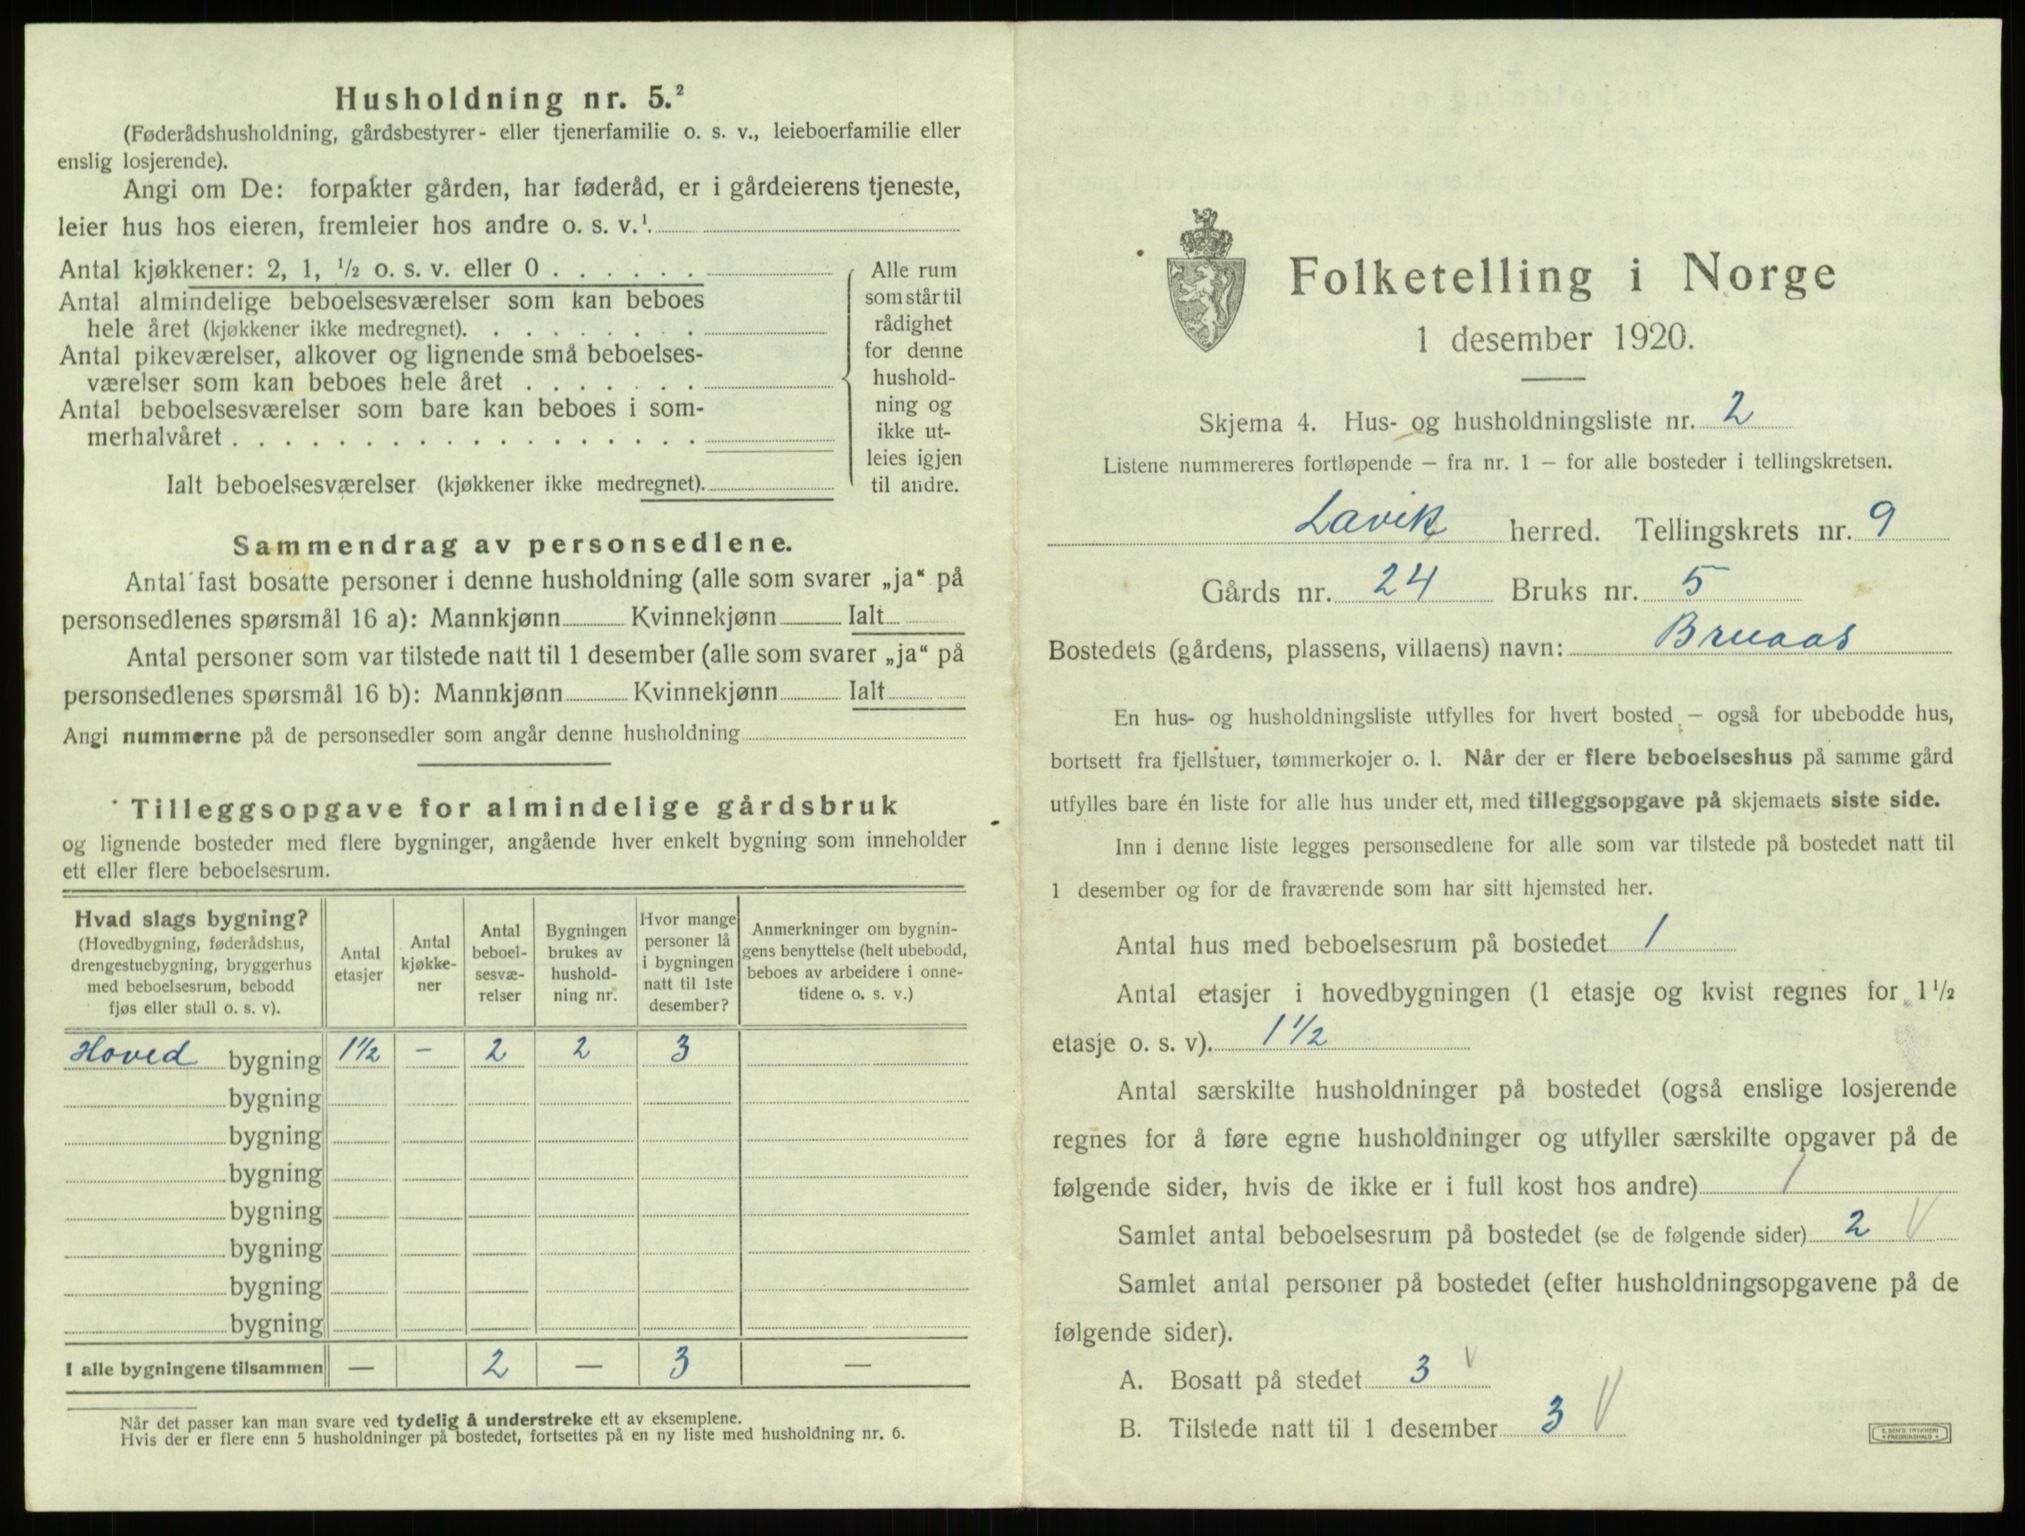 Husholdning nr. 5.²
(Føderådshusholdning, gårdsbestyrer- eller tjenerfamilie o. s. v., leieboerfamilie eller
enslig losjerende).
Angi om De: forpakter gården, har føderåd, er i gårdeierens tjeneste,
leier hus hos eieren, fremleier hos andre o. s. v.¹
Antal kjøkkener: 2, 1, ½ o. s. v. eller 0
Antal almindelige beboelsesværelser som kan beboes
hele året (kjøkkener ikke medregnet).
Antal pikeværelser, alkover og lignende små beboelses-
værelser som kan beboes hele året
Antal beboelsesværelser som bare kan beboes i som-
merhalvåret
Ialt beboelsesværelser (kjøkkener ikke medregnet).
Alle rum
som står til
rådighet
for denne
hushold-
ning og
ikke ut-
leies igjen
til andre.
Sammendrag av personsedlene.
Antal fast bosatte personer i denne husholdning (alle som svarer „ja“ på
personsedlenes spørsmål 16 a): Mannkjønn Kvinnekjønn Ialt
Antal personer som var tilstede natt til 1 desember (alle som svarer „ja“ på
personsedlenes spørsmål 16 b): Mannkjønn Kvinnekjønn Ialt
Angi nummerne på de personsedler som angår denne husholdning
Tilleggsopgave for almindelige gårdsbruk
og lignende bosteder med flere bygninger, angående hver enkelt bygning som inneholder
ett eller flere beboelsesrum.
Hvad slags bygning?
(Hovedbygning, føderådshus,
drengestuebygning, bryggerhus
med beboelsesrum, bebodd
fjøs eller stall o. s. v).
Antal
etasjer
Antal
kjøkke-
ner
Antal
beboel-
sesvæ-
relser
Bygningen
brukes av
hushold-
ning nr.
Hvor mange
personer lå
i bygningen
natt til 1ste
desember?
Anmerkninger om bygnin-
gens benyttelse (helt ubebodd,
beboes av arbeidere i onne-
tidene o. s. v.)
Hoved bygning 1½ – 2 2 3
bygning
bygning
bygning
bygning
bygning
bygning
bygning
I alle bygningene tilsammen — 2 — 3 —
Når det passer kan man svare ved tydelig å understreke ett av eksemplene.
Hvis der er flere enn 5 husholdninger på bostedet, fortsettes på en ny liste med husholdning nr. 6.
Folketelling i Norge
1 desember 1920.
Skjema 4. Hus- og husholdningsliste nr. 2
Listene nummereres fortløpende – fra nr. 1 – for alle bosteder i tellingskretsen.
Lavik herred. Tellingskrets nr. 9
Gårds nr. 24 Bruks nr. 5
Bostedets (gårdens, plassens, villaens) navn: Bruaas
En hus- og husholdningsliste utfylles for hvert bosted – også for ubebodde hus,
bortsett fra fjellstuer, tømmerkojer o. l. Når der er flere beboelseshus på samme gård
utfylles bare én liste for alle hus under ett, med tilleggsopgave på skjemaets siste side.
Inn i denne liste legges personsedlene for alle som var tilstede på bostedet natt til
1 desember og for de fraværende som har sitt hjemsted her.
Antal hus med beboelsesrum på bostedet 1
Antal etasjer i hovedbygningen (1 etasje og kvist regnes for 1½
etasje o. s. v). 1½
Antal særskilte husholdninger på bostedet (også enslige losjerende
regnes for å føre egne husholdninger og utfyller særskilte opgaver på de
følgende sider, hvis de ikke er i full kost hos andre) 1
Samlet antal beboelsesrum på bostedet (se de følgende sider) 2 √
Samlet antal personer på bostedet (efter husholdningsopgavene på de
følgende sider).
A. Bosatt på stedet 3 √
B. Tilstede natt til 1 desember 3 √